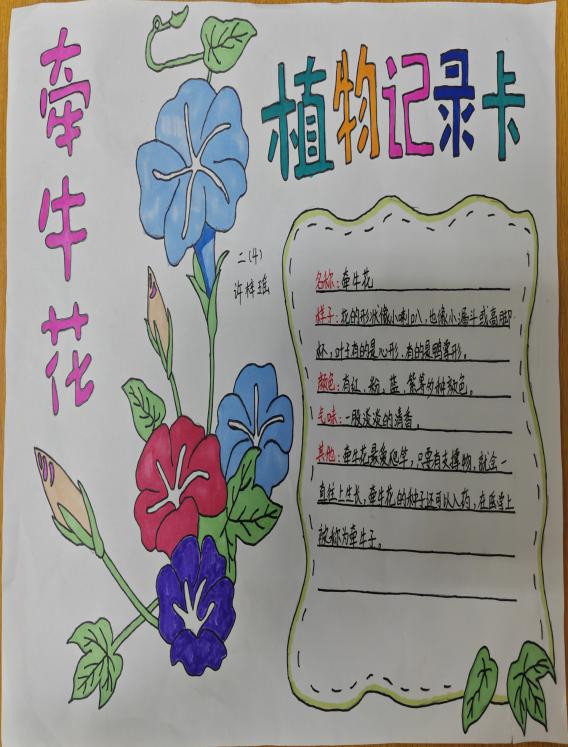 牵牛花
植物记录卡
二(4)
许梓瑶
名称:牵牛花
样子:花的形状像小喇叭,也像小漏斗或高脚
杯,叶子有的是心形,有的是鸭掌形。
颜色:有红、粉、蓝、紫等多种颜色。
气味:一股淡淡的清香。
其他:牵牛花最爱爬竿,只要有支撑物,就会一
直往上生长,牵牛花的种子还可以入药,在医学上
被称为牵牛子。